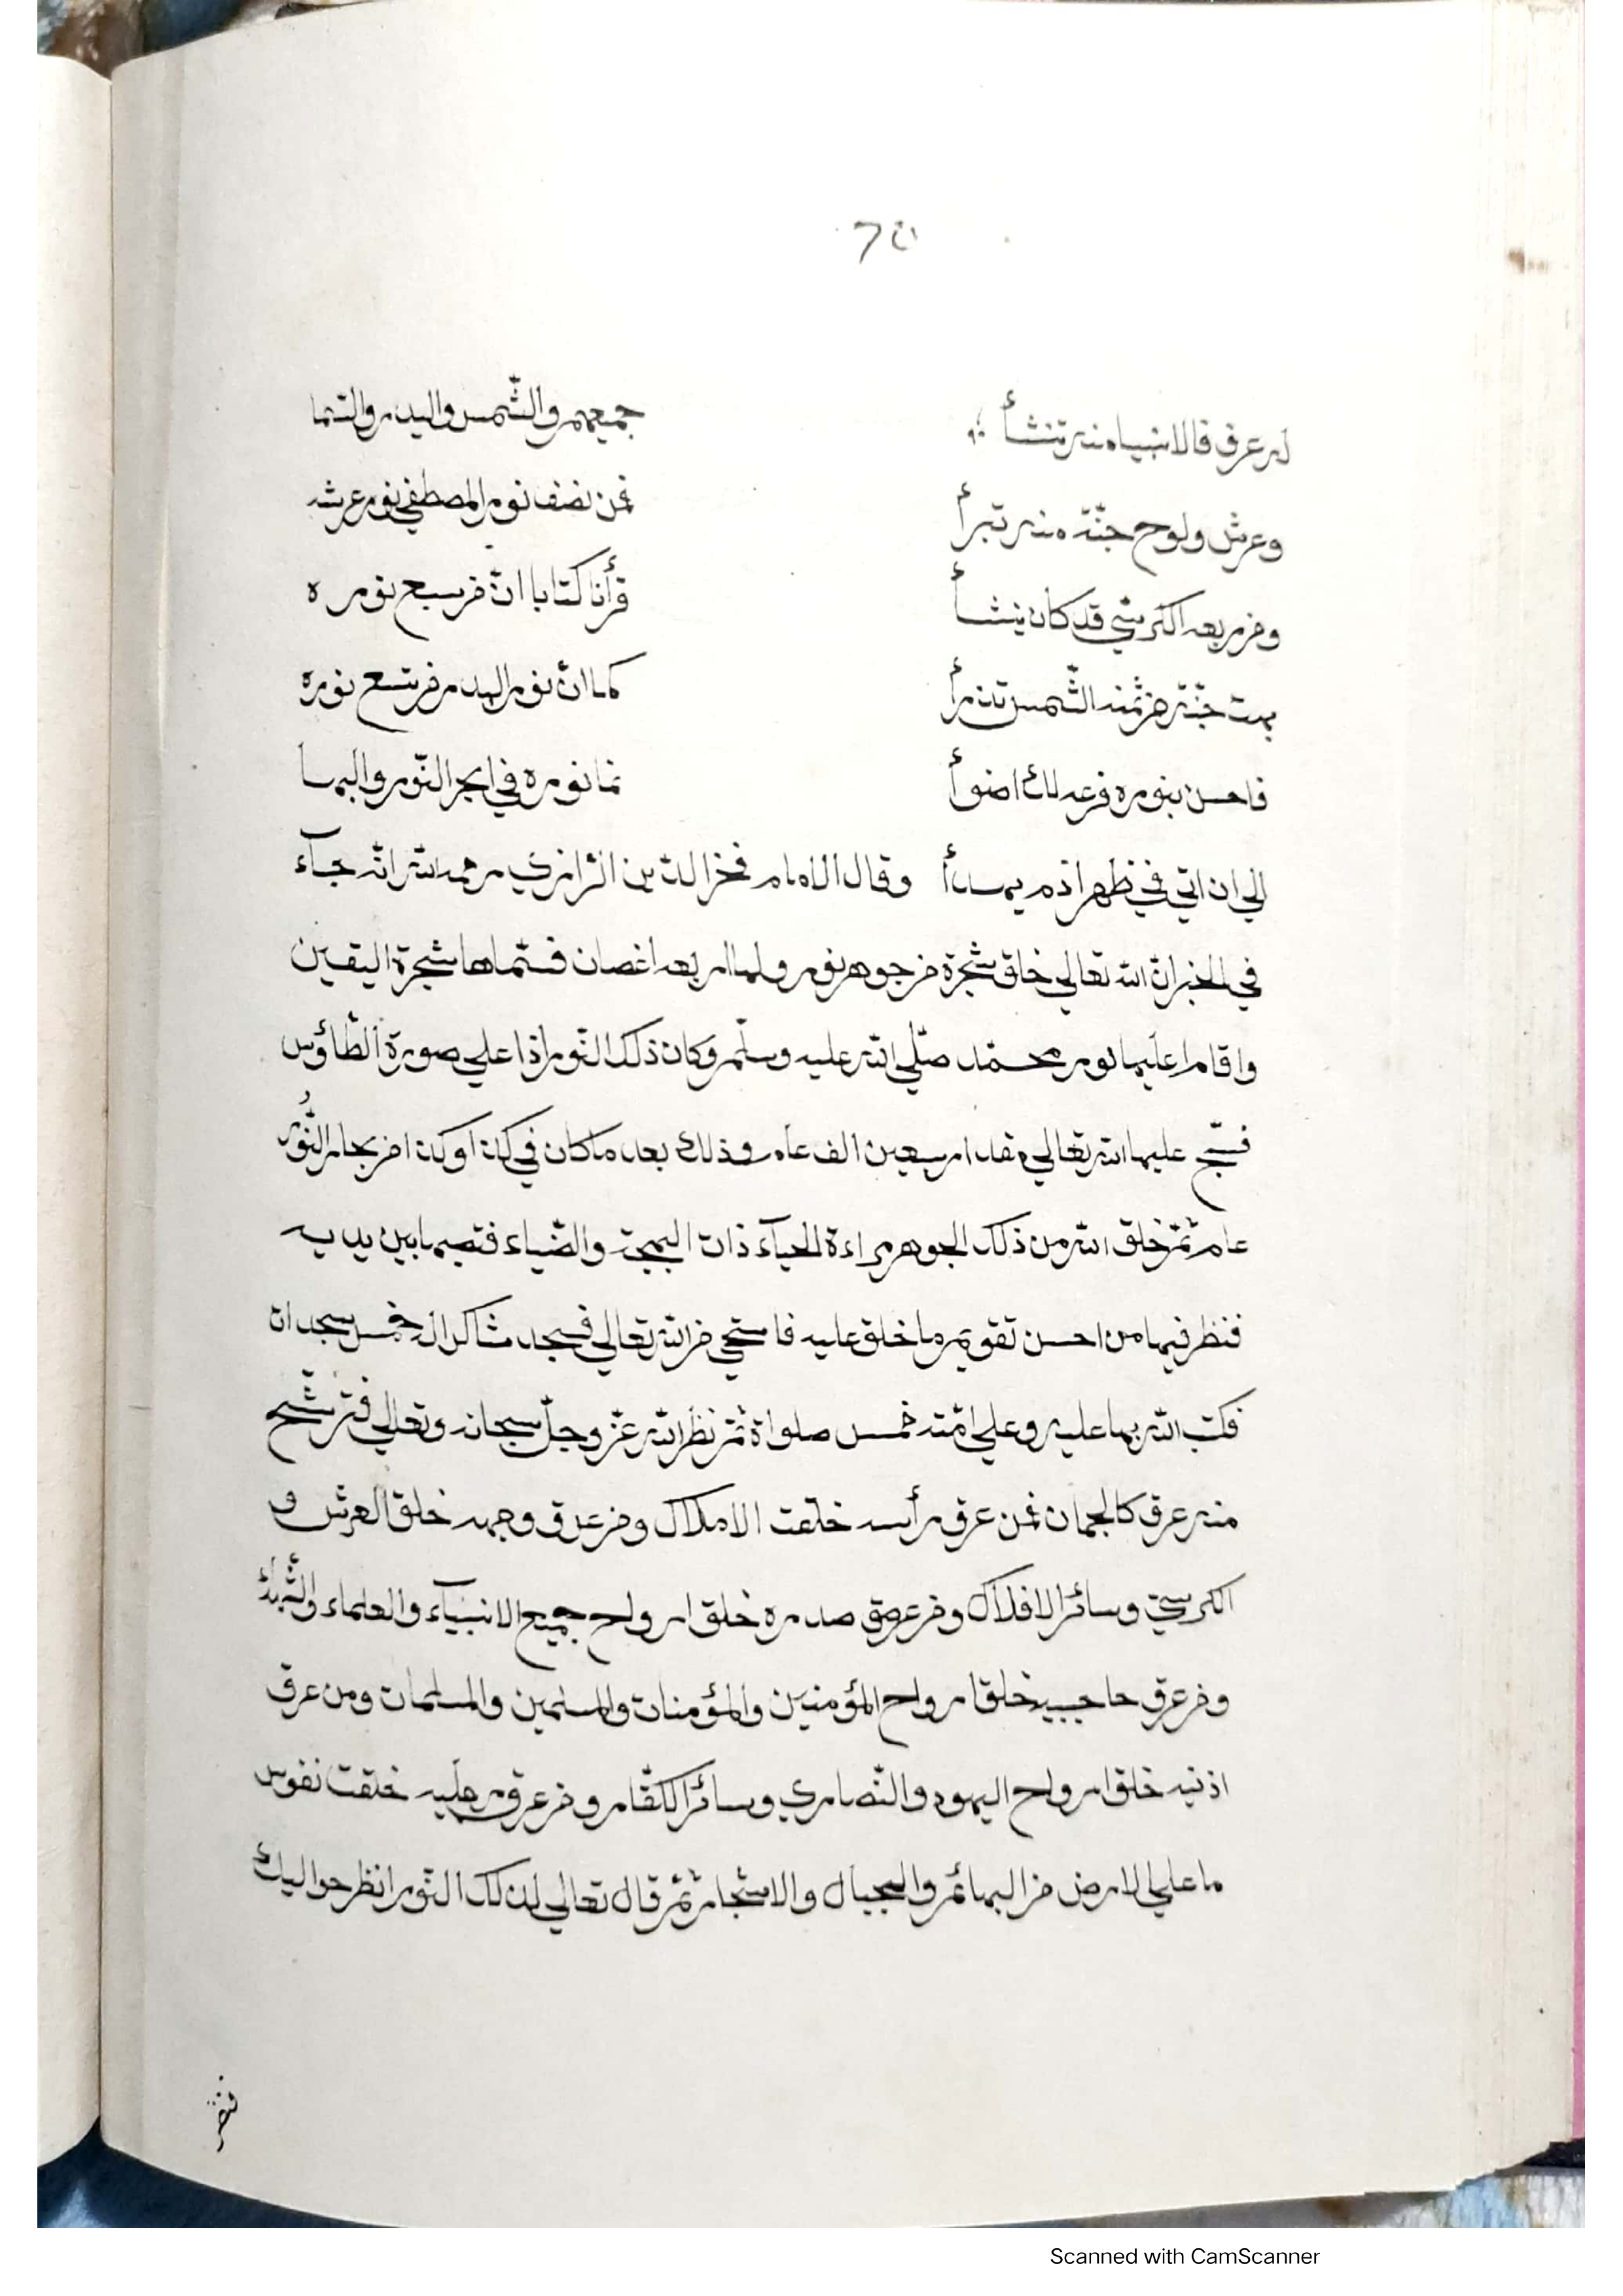 له عرق فالانبياء منه تنشأ جميعهم والشّمس والبدر والسّما
وعرش ولوح جنّة منه تبرأ فمن نصف نور المصطفي نور عرشه
ومن ربعه الكرسّي قد كان ينشأ قرأنا كتابا انّ من سبع نوره
بهت جنّة من ثمنه الشّمس تذرأ كما انّ نور البدر من تسع نوره
فاحسن بنوره فرعه لك اضوأ نما نوره في ابحر النّور والبها
الي ان اتي في ظهر اذم يهدأ وقال الامام فخر الدّين الرّازي رحمه الله انّه جآء
في الخبر انّ الله تعالي خلق شجرة من جوهر نور ولها اربعه اغصان فسمّاها شجرة اليقين
واقام عليها نور محمّد صلّي الله عليه وسلّم وكان ذلك النّور اذا علي صورة الطّاؤس
فسبّح عليها الله تعالي مقدار سبعين الف عام وذلك بعد ما كان في كذا وكذا من بحار النّور
عام ثمّ خلق الله من ذلك الجوهر مراءة الحيآء ذات البهجة والضّياء فنصبها بين يديه
فنظر فيها من احسن تقويم ما خلق عليه فاستحي من الله تعالي فسجد شاكرا له خمس سجدات
فكتب الله بها عليه وعلي امّته خمس صلواة ثمّ نظر الله عزّ وجلّ سبحانه وتعالي فترشّح
منه عرق كالجمان فمن عرق رأسه خلقت الاملاك ومن عرق وجهه خلق العرش و
الكرسيّ وسائر الافلاك ومن عرق صدره خلق ارواح جميع الانبيآء والعلماء والشّهداء
ومن عرق حاجبيه خلق ارواح المؤمنين والمؤمنات والمسلمين والمسلمات ومن عرق
اذنيه خلق ارواح اليهود والنّصاري وسائر الكفّار ومن عرق رجليه خلقت نفوس
ما علي الارض من البهائم والجبال والاشجار ثمّ قال تعالي لذلك النّور انظر حواليك
Scanned with CamScanner